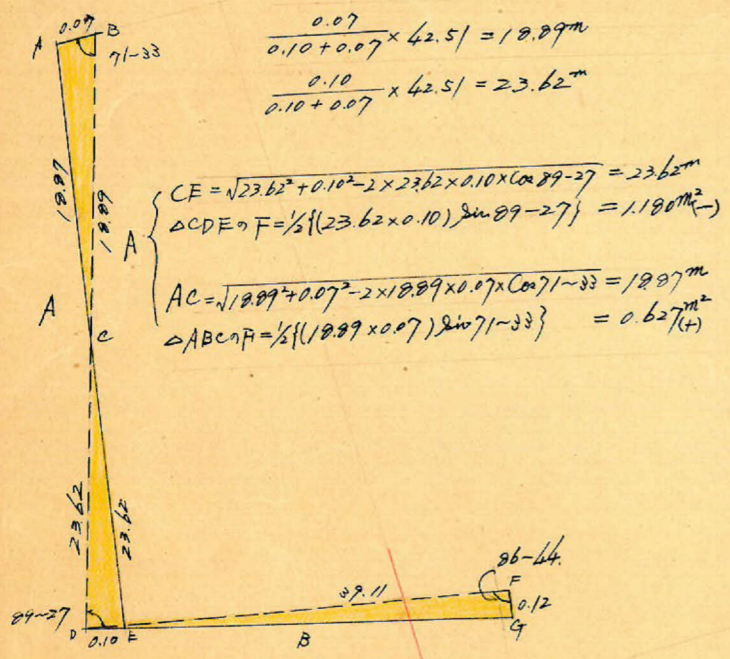 0.07
A
B
71-33
0.07/(0.10+0.07) × 42.51 = 18.89m
0.10/(0.10+0.07) × 42.51 = 23.62m
18.87
18.89
A
A
CE = √(23.62²+0.10²-2×23.62×0.10×Cos 89-27) = 23.62m
△CDEのF=½{(23.62×0.10) Sin 89-27} = 1.180m²(-)
AC = √(18.89²+0.07²-2×18.89×0.07×Cos 71~33) = 18.87m
△ABCのF=½{(18.89×0.07) Sin 71~33} = 0.627m²(+)
C
23.62
23.62
86-44.
F
39.11
0.12
89~27
D
0.10
E
B
G